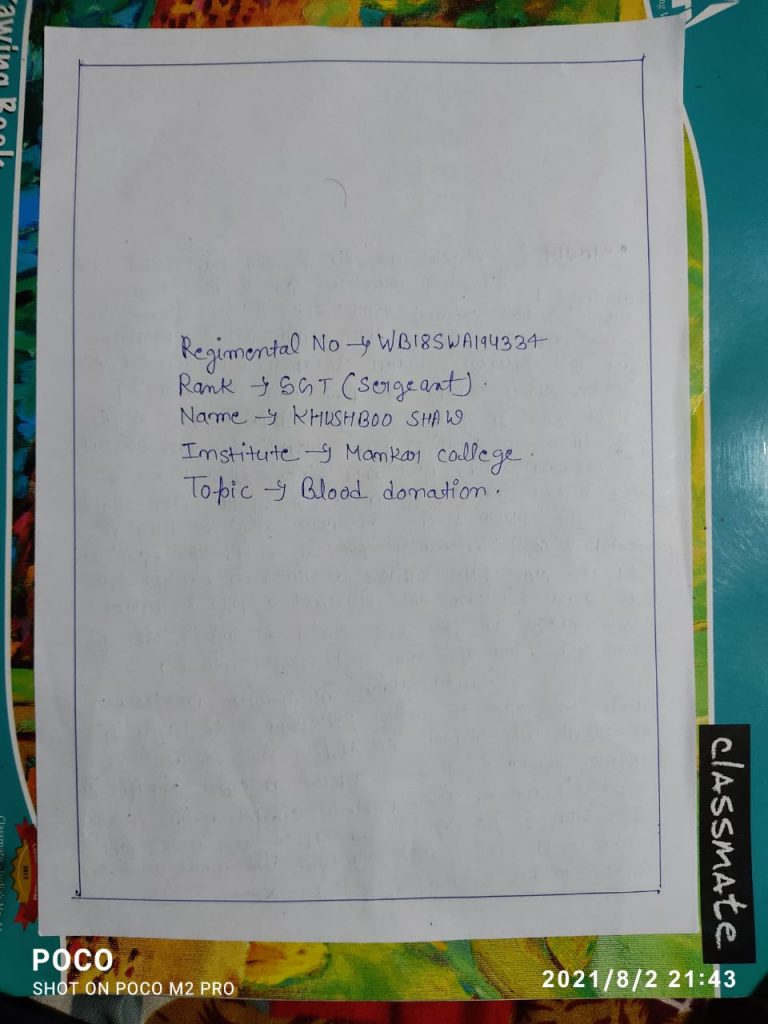 awing Book
Regimental No → WB18SWA194334
Rank → SGT (Sergeant).
Name → KHUSHBOO SHAW
Institute → Mankar college.
Topic → Blood donation.
classmate
POCO
SHOT ON POCO M2 PRO
2021/8/2 21:43